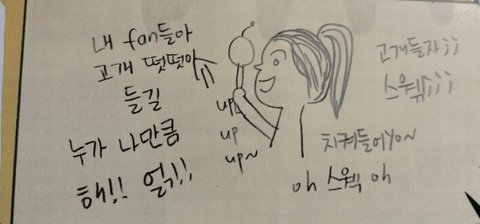 내 fan들아
고개 떳떳이
들길
누가 나만큼
해!! 얽!!
up
up
up~
고개들자ii
스웩iii
치켜들어yo~
oh 스웩 oh